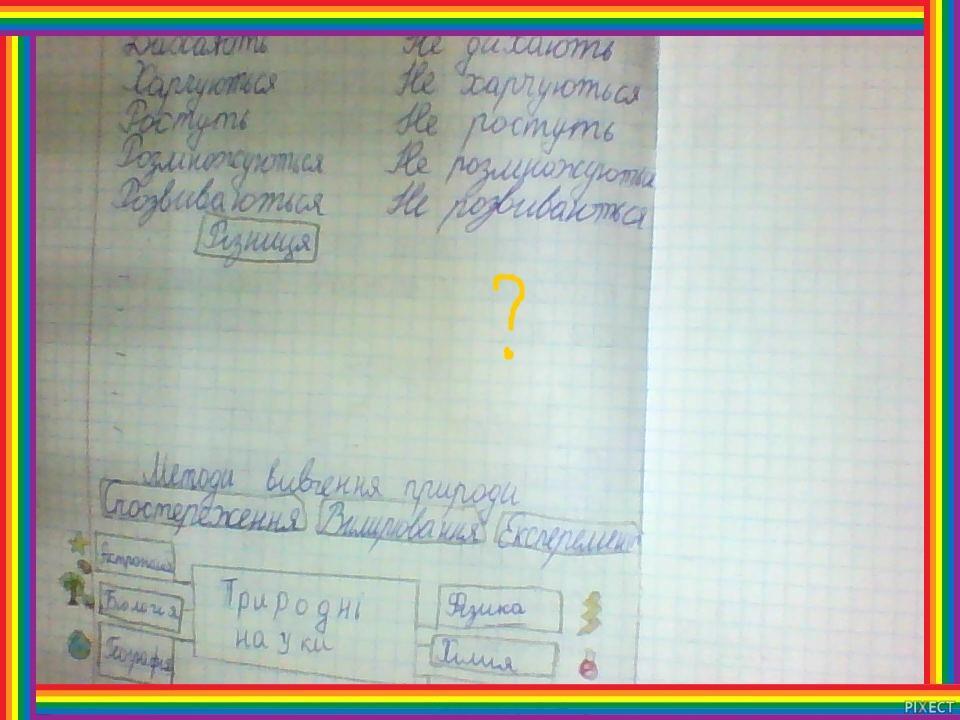 Дихають Не дихають
Харчуються Не харчуються
Ростуть Не ростуть
Розмножуються Не розмножуються
Розвиваються Не розвиваються
Різниця
?
Методи вивчення природи
Спостереження Вимірювання Експеремент
Астрономія
Біологія
Географія
Природні
науки
Фізика
Хімия
PIXECT